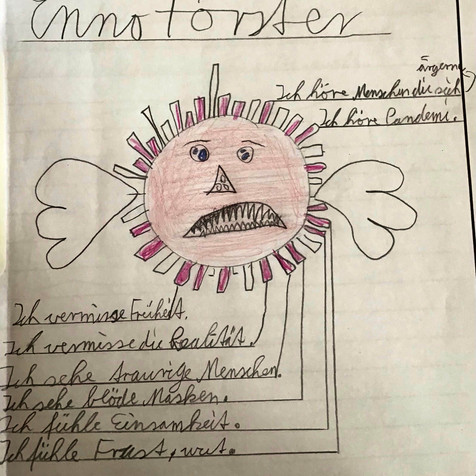 Enno Förster
ärgern.
Ich höre Menschen die sich
Ich höre Pandemi.
Ich vermisse Früheit.
Ich vermisse die Realität.
Ich sehe traurige Menschen.
Ich sehe blöde Masken.
Ich fühle Einsamkeit.
Ich fühle Frust, wut.